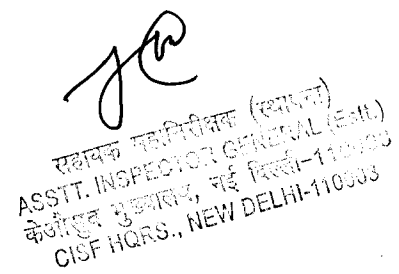 सहायक महानिरीक्षक (स्थापना)
ASSTT. INSPECTOR GENERAL (Estt.)
केऔसुब मुख्यालय, नई दिल्ली-110003
CISF HQRS., NEW DELHI-110003